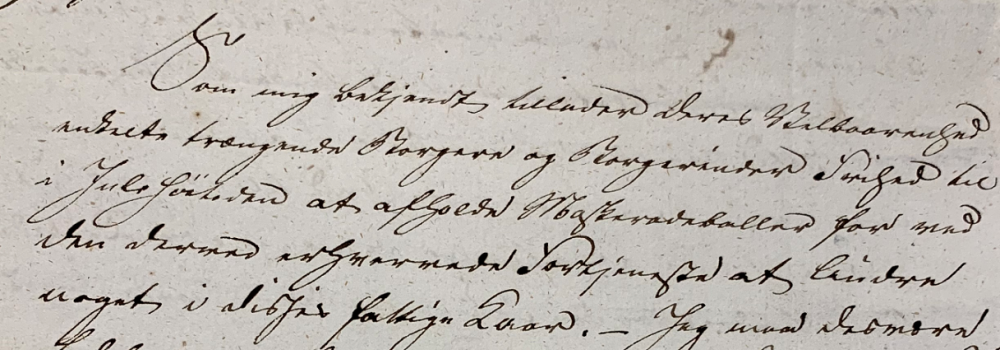 Som mig bekjendt, tillader Deres Velbaarenhed
enkelte trængende Borgere og Borgerinder Frihed til
i Julehöitiden at afholde Maskeradeballer for ved
den derved erhvervede Fortjeneste at lindre
noget i disses fattige Kaar. – Jeg maa desværre